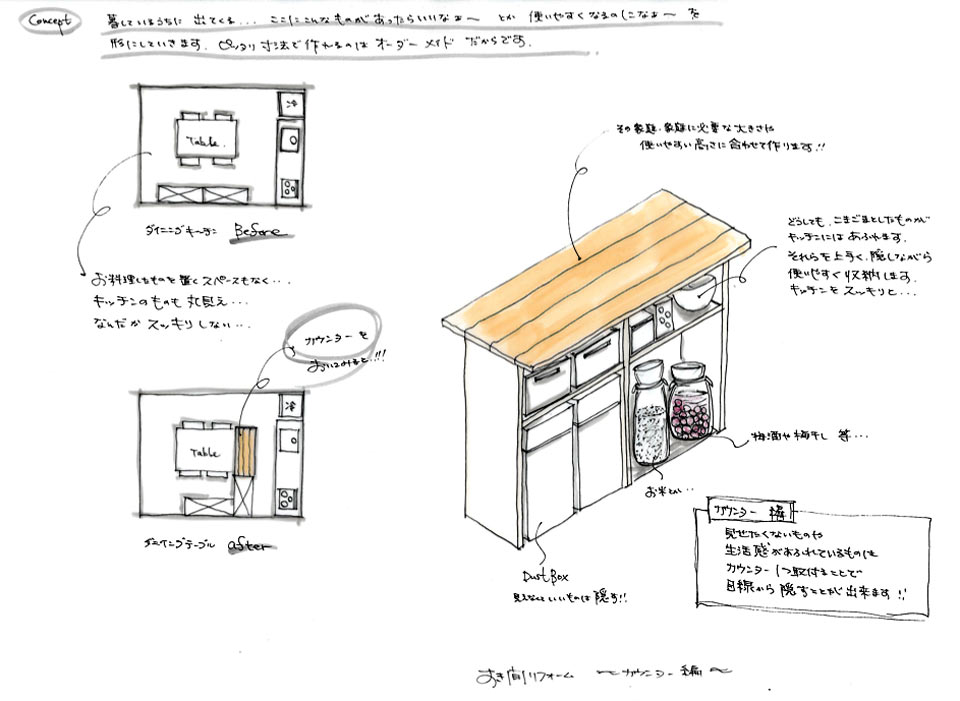 Concept
暮しているうちに 出てくる... ここにこんなものがあったらいいなぁ〜 とか 使いやすくなるのになぁ〜 を
形にしていきます。ピッタリ寸法で作れるのは オーダーメイド だからです。
冷
Table.
ダイニングキッチン Before
お料理したものを置くスペースもなく...
キッチンのものも丸見え...
なんだか スッキリしない...
カウンターを
おいてみると...!!!
冷
Table
ダイニングテーブル after
その家庭、家庭に必要な大きさや
使いやすい高さに合わせて作ります!!
どうしても、こまごまとしたものが
キッチンには あふれます。
それらを上手く、隠しながら
使いやすく収納します。
キッチンをスッキリと...
梅酒や梅干し 等...
お米とか...
Dust Box
見えなくていいものは 隠す!!
カウンター 編
見せたくないものや
生活感があふれているものを
カウンター1つ取付ることで
目線から 隠すことが出来ます!!
リフォーム 〜カウンター編〜